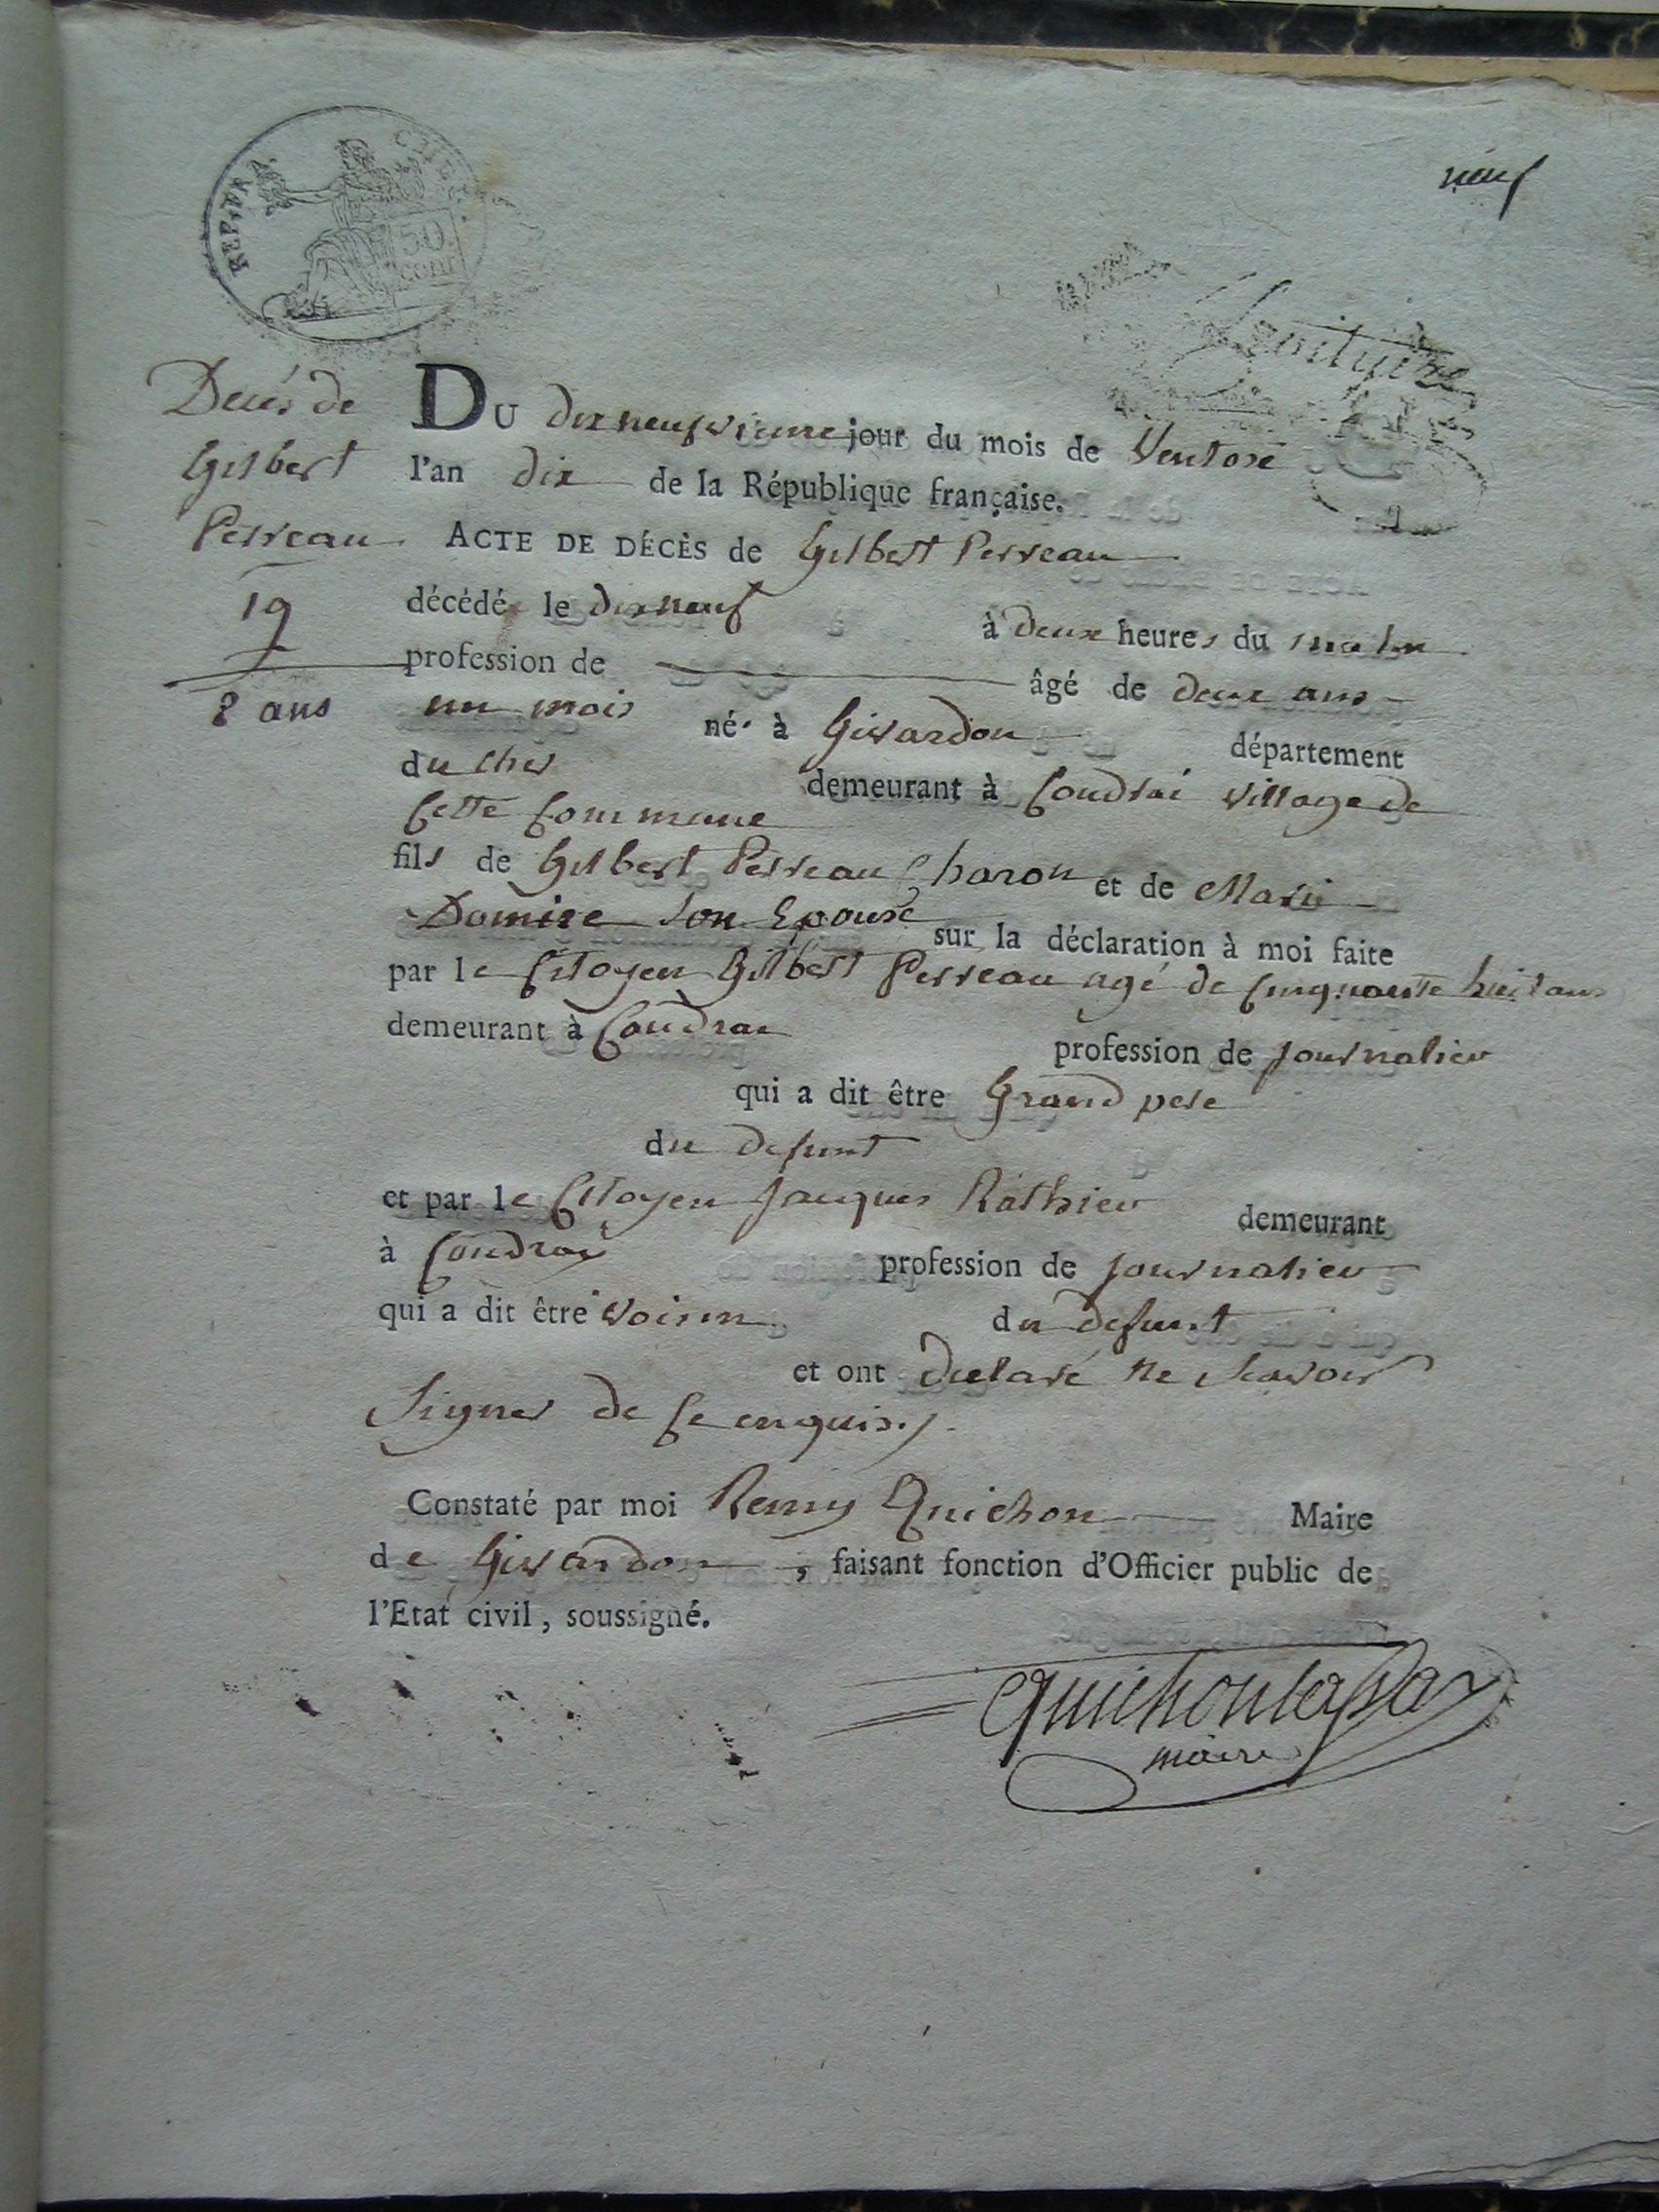 neuf
REP. FRA.
50
cent
Decés de
Gilbert
Perreau
19
2 ans
DU dixneufvieme jour du mois de Ventose
l'an dix de la République française.
ACTE DE DÉCÈS de Gilbert Perreau
décédé le dixneuf à deux heures du matin
profession de âgé de deux ans
un mois né à Givardon département
du cher demeurant à Coudrai village de
Cette Commune
fils de Gilbert Perreau Charon et de Marie
Damire son Epouse sur la déclaration à moi faite
par le Citoyen Gilbert Perreau agé de Cinquante huit ans
demeurant à Coudrai profession de journalier
qui a dit être Grand pere
du defunt
et par le Citoyen Jacques Rathier demeurant
à Coudray profession de journalier
qui a dit être voisin du defunt
et ont declaré ne scavoir
Signer de Ce enquis./.
Constaté par moi Remy Quichon Maire
de Givardon, faisant fonction d'Officier public de
l'Etat civil, soussigné.
maire